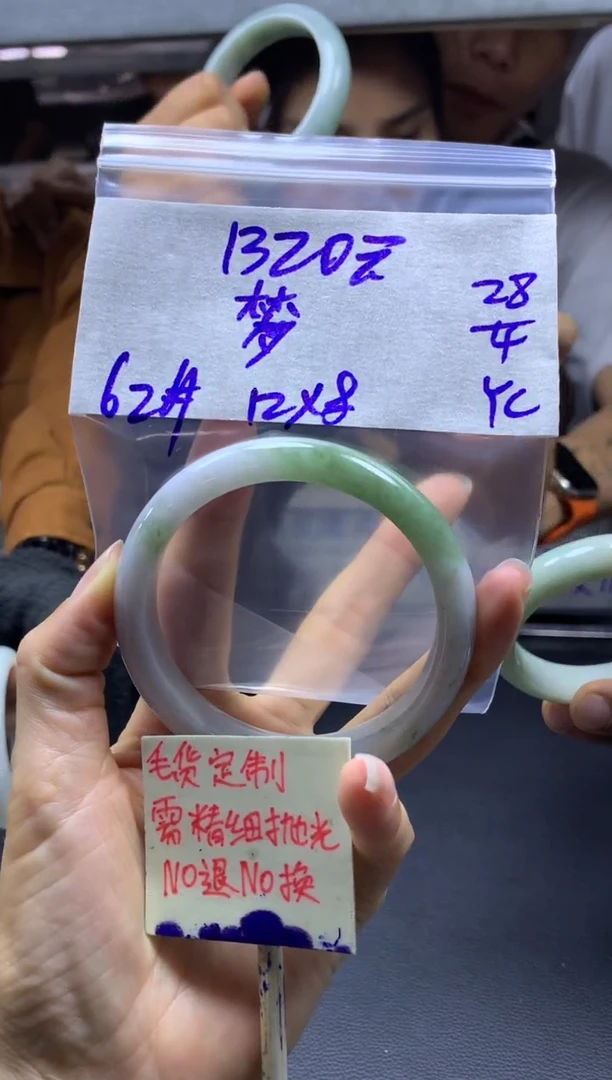 1320元
梦
28
62# 12x8
YC
毛货定制
需精细抛光
NO退NO换